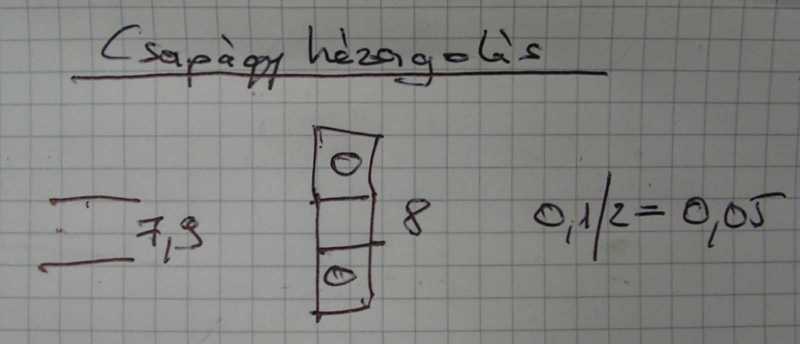 Csapágy hézagolás
7,9 8 0,1/2 = 0,05